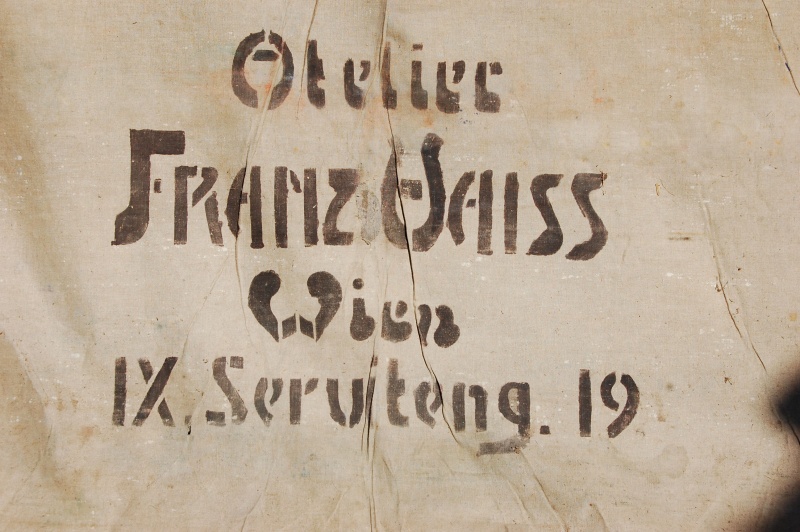 Atelier
FRANZ
Wien
IX. Serviteng. 19